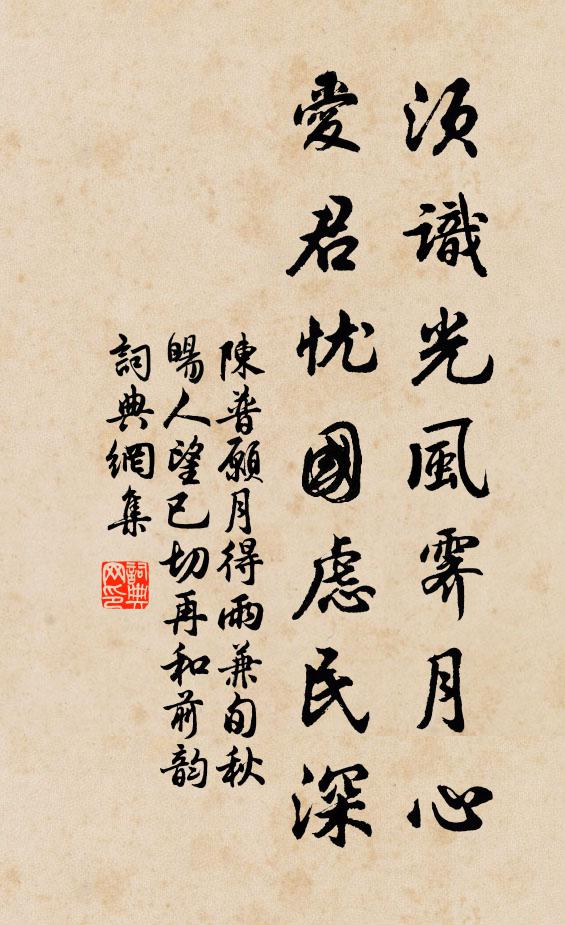 須識光風霽月心
愛君忧國慮民深
陳普願月得雨兼旬秋
暘人望已切再和前韵
詞典網集
詞典網印